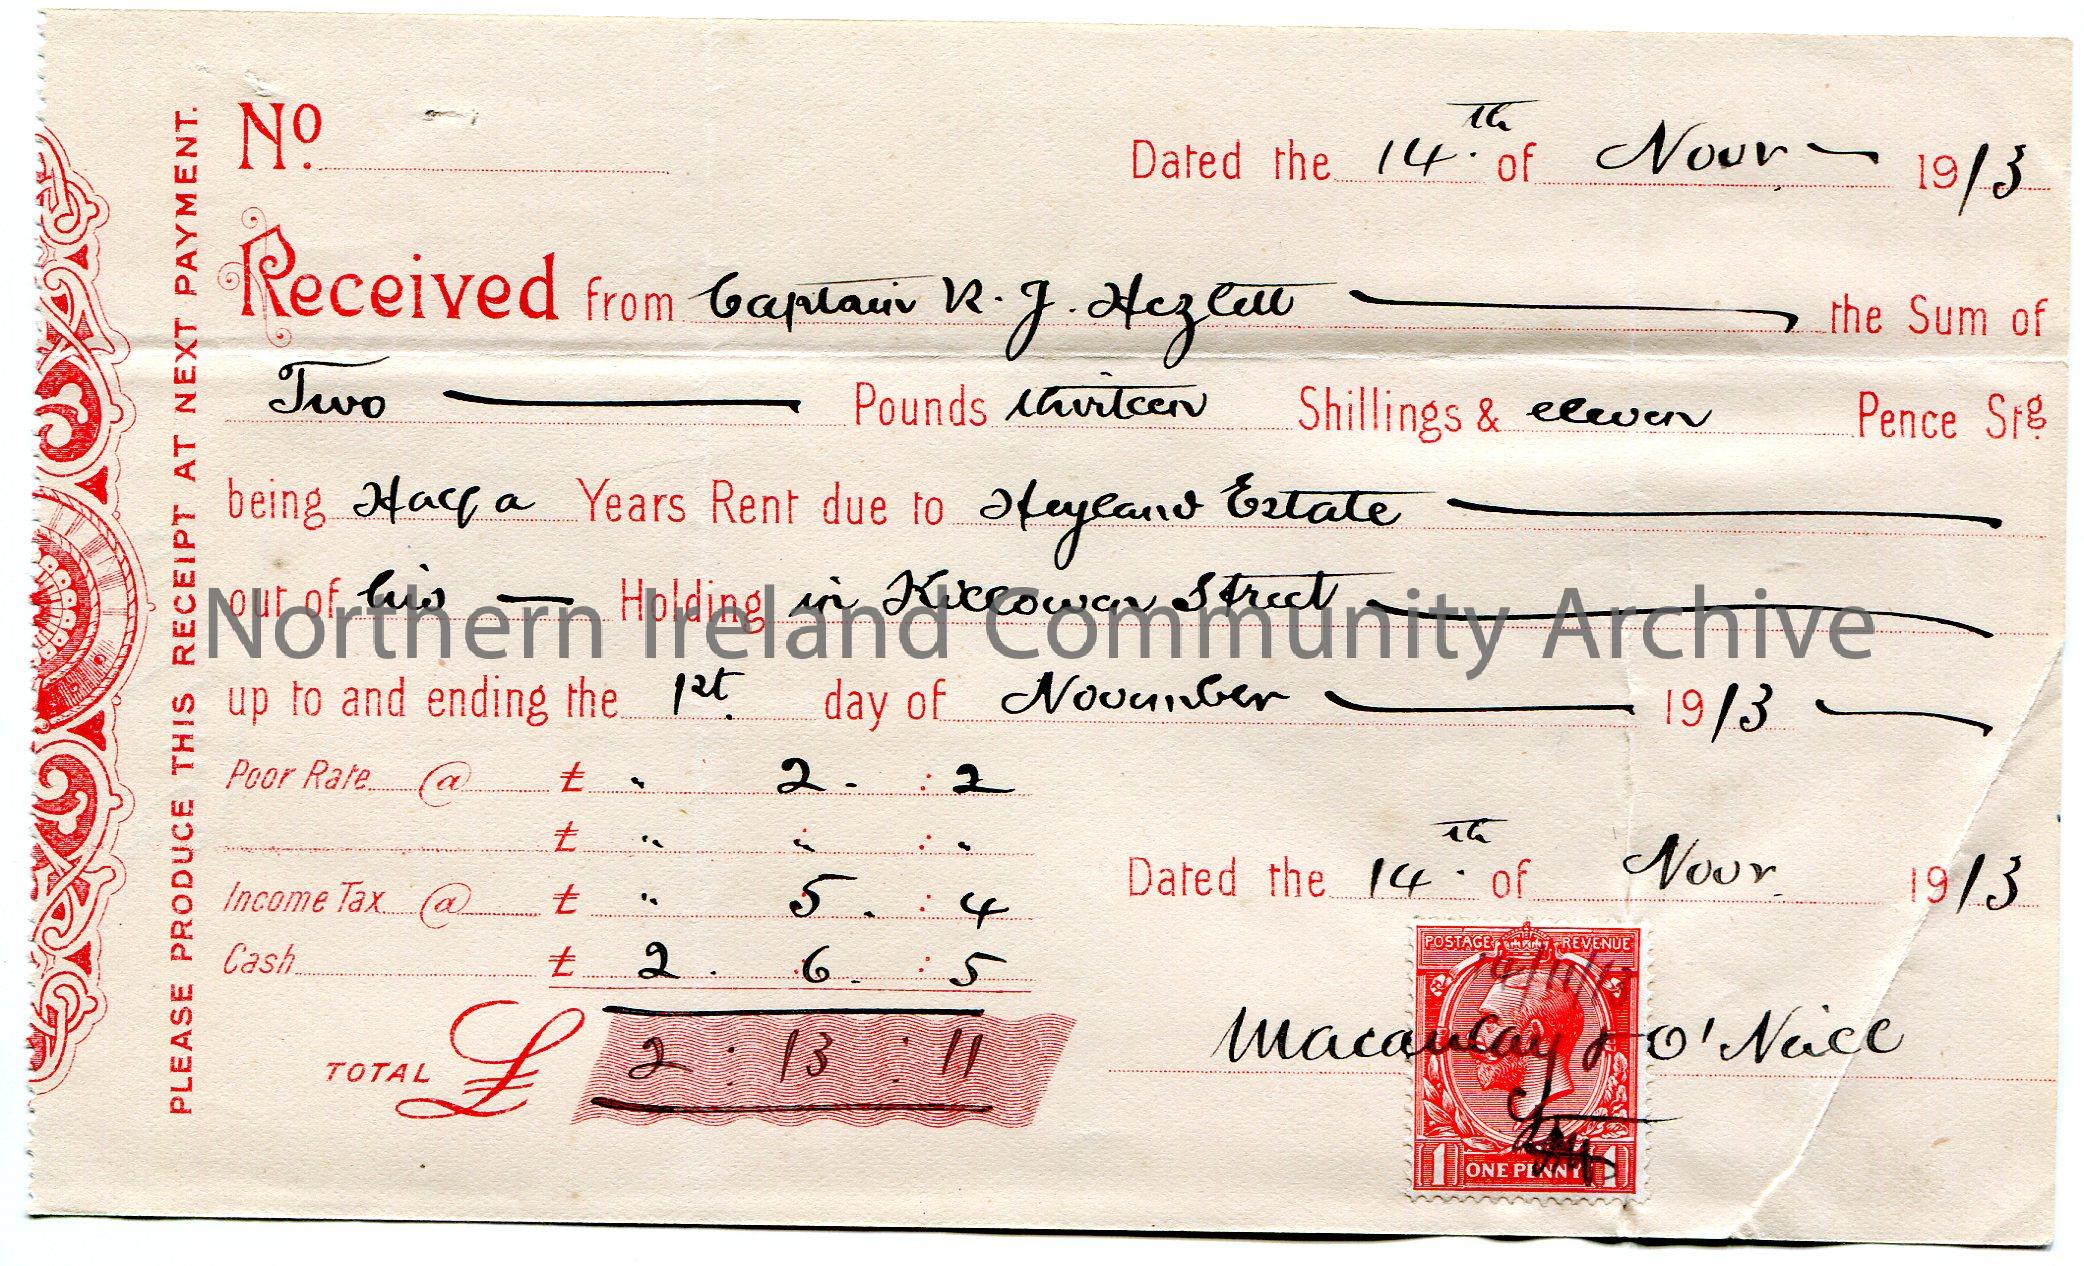 PLEASE PRODUCE THIS RECEIPT AT NEXT PAYMENT.
No.
Dated the 14th. of Novr 1913
Received from Captain R. J. Hezlett the Sum of
Two Pounds thirteen Shillings & eleven Pence Stg.
being Half a Years Rent due to Heyland Estate
out of his Holding in Killowen Street
Northern Ireland Community Archive
up to and ending the 1st. day of November 1913
Poor Rate @ £ " 2 . : 2
£ " " : "
Income Tax @ £ " 5 . : 4
Cash £ 2 . 6 . : 5
TOTAL £ 2 : 13 : 11
Dated the 14th. of Novr. 1913
POSTAGE REVENUE
14/11/13
Macaulay & O'Neill
1 ONE PENNY 1